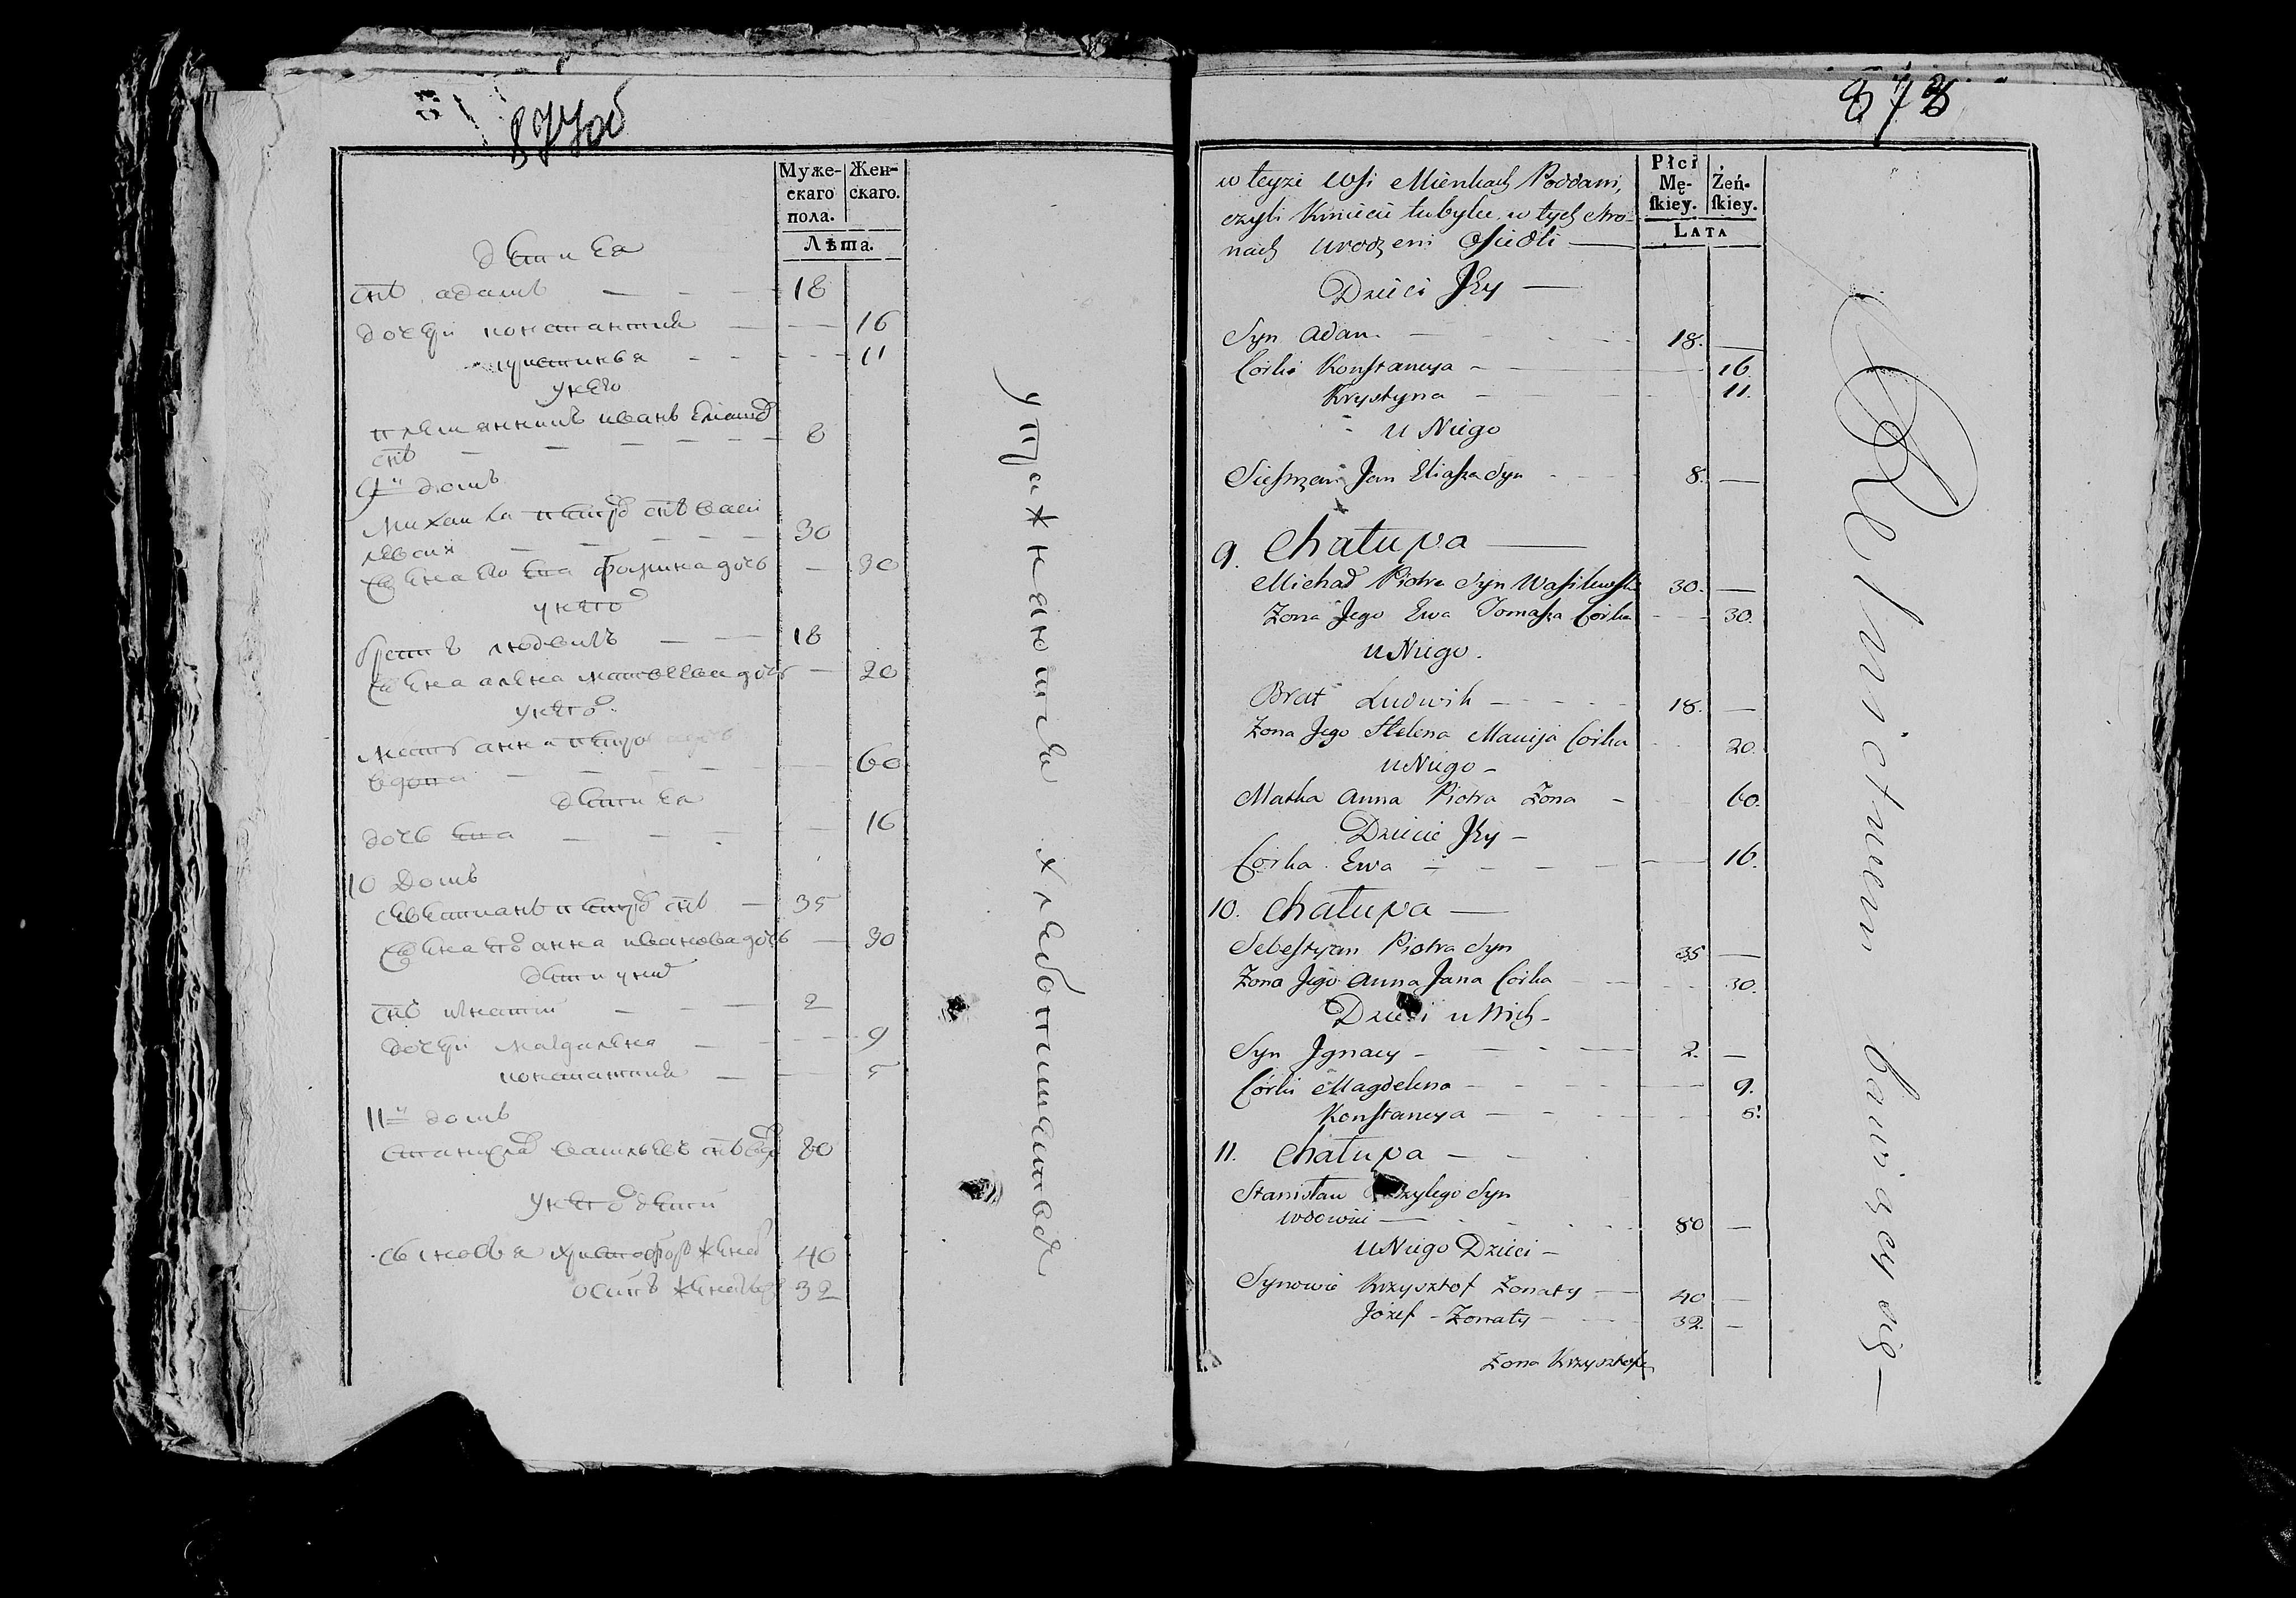 877об
Муже-
скаго
пола.
Жен-
скаго.
Лѣта.
дети Ея
снъ адамъ — — — 18
дочери констанция — — — 16
кристинья — — — 11
у него
племянникъ иванъ
снъ — — — 8
9й домъ
Михаила петровъ снъ васи
левски — — — 30
жена его ева фомина дочь — 30
у него
братъ людвикъ — — 18
жена алена матвеева дочь — 20
у него
мать анна
вдова — — — 60
дети Ея
дочь ева — — — 16
10 Домъ
севестианъ петровъ снъ — 35
жена его анна иванова дочь — 30
дети у них
снъ игнатий — — — 2
дочери магдалена — — — 9
констанция — — — 5
11й домъ
станиславъ васильевъ снъ 80
у него дети
сыновья христофоръ женатъ 40
осипъ 32
упражняются хлебопашествомъ
878
w teyże Wsi Mienkach Poddani,
czyli Kmiecie tubylcy w tych stro-
nach urodzeni Osiedli —
Płci
Mę-
skiey.
Żeń-
skiey.
LATA
Dzieci Jey —
Syn Adam — 18. —
Córki Konstancya — 16.
Krystyna — 11.
u Niego
Siestrzan Jan Eliasza Syn — 8. —
9. Chałupa —
Michał Piotra Syn Wasilewski 30. —
Żona Jego Ewa Tomasza Córka — 30.
u Niego.
Brat Ludwik — 18. —
Żona Jego Helena Macieja Córka 20.
u Niego —
Matka Anna Piotra Żona — 60.
Dziecie Jey —
Córka Ewa — 16.
10. Chałupa —
Sebestyan Piotra Syn 35 —
Żona Jego Anna Jana Córka 30.
Dzieci u Nich —
Syn Jgnacy — 2. —
Córki Magdelena — 9.
Konstancya — 5.
11. Chałupa —
Stanisław Syn
wdowiec — 80 —
u Niego Dzieci —
Synowie Krzysztof Żonaty — 40 —
Józef — Żonaty — 32. —
Żona Krzysztofa
Rolnictwem bawią się —